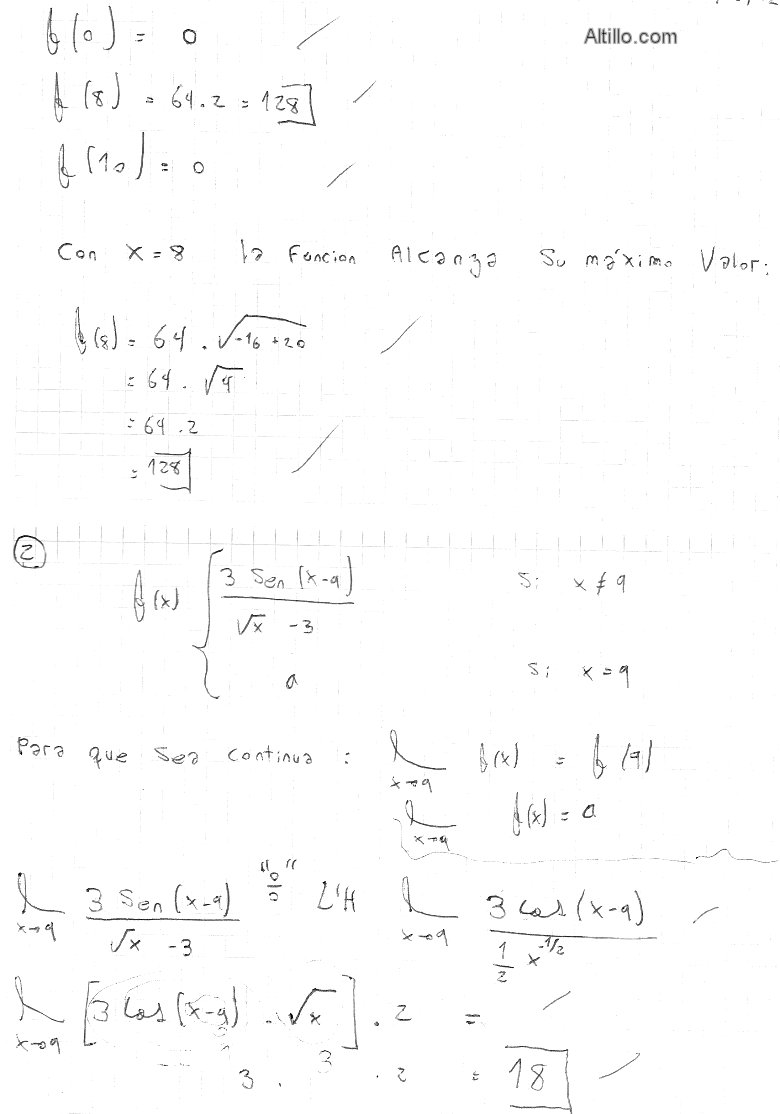 Altillo.com
f(0) = 0
f(8) = 64.2 = 128
f(10) = 0
Con x=8 la Funcion Alcanza Su máximo Valor:
f(8) = 64 . √-16+20
= 64 . √4
= 64 .2
= 128
2
f(x) { 3 Sen (x-9) / √x -3 Si x ≠ 9
a Si x = 9
Para que Sea continua : lim x→9 f(x) = f(9)
lim x→9 f(x) = a
lim x→9 3 Sen (x-9) / √x -3 "0/0" L'H lim x→9 3 cos (x-9) / 1/2 x^-1/2
lim x→9 [3 cos (x-9) . √x] . 2 =
3 . 3 . 2 = 18